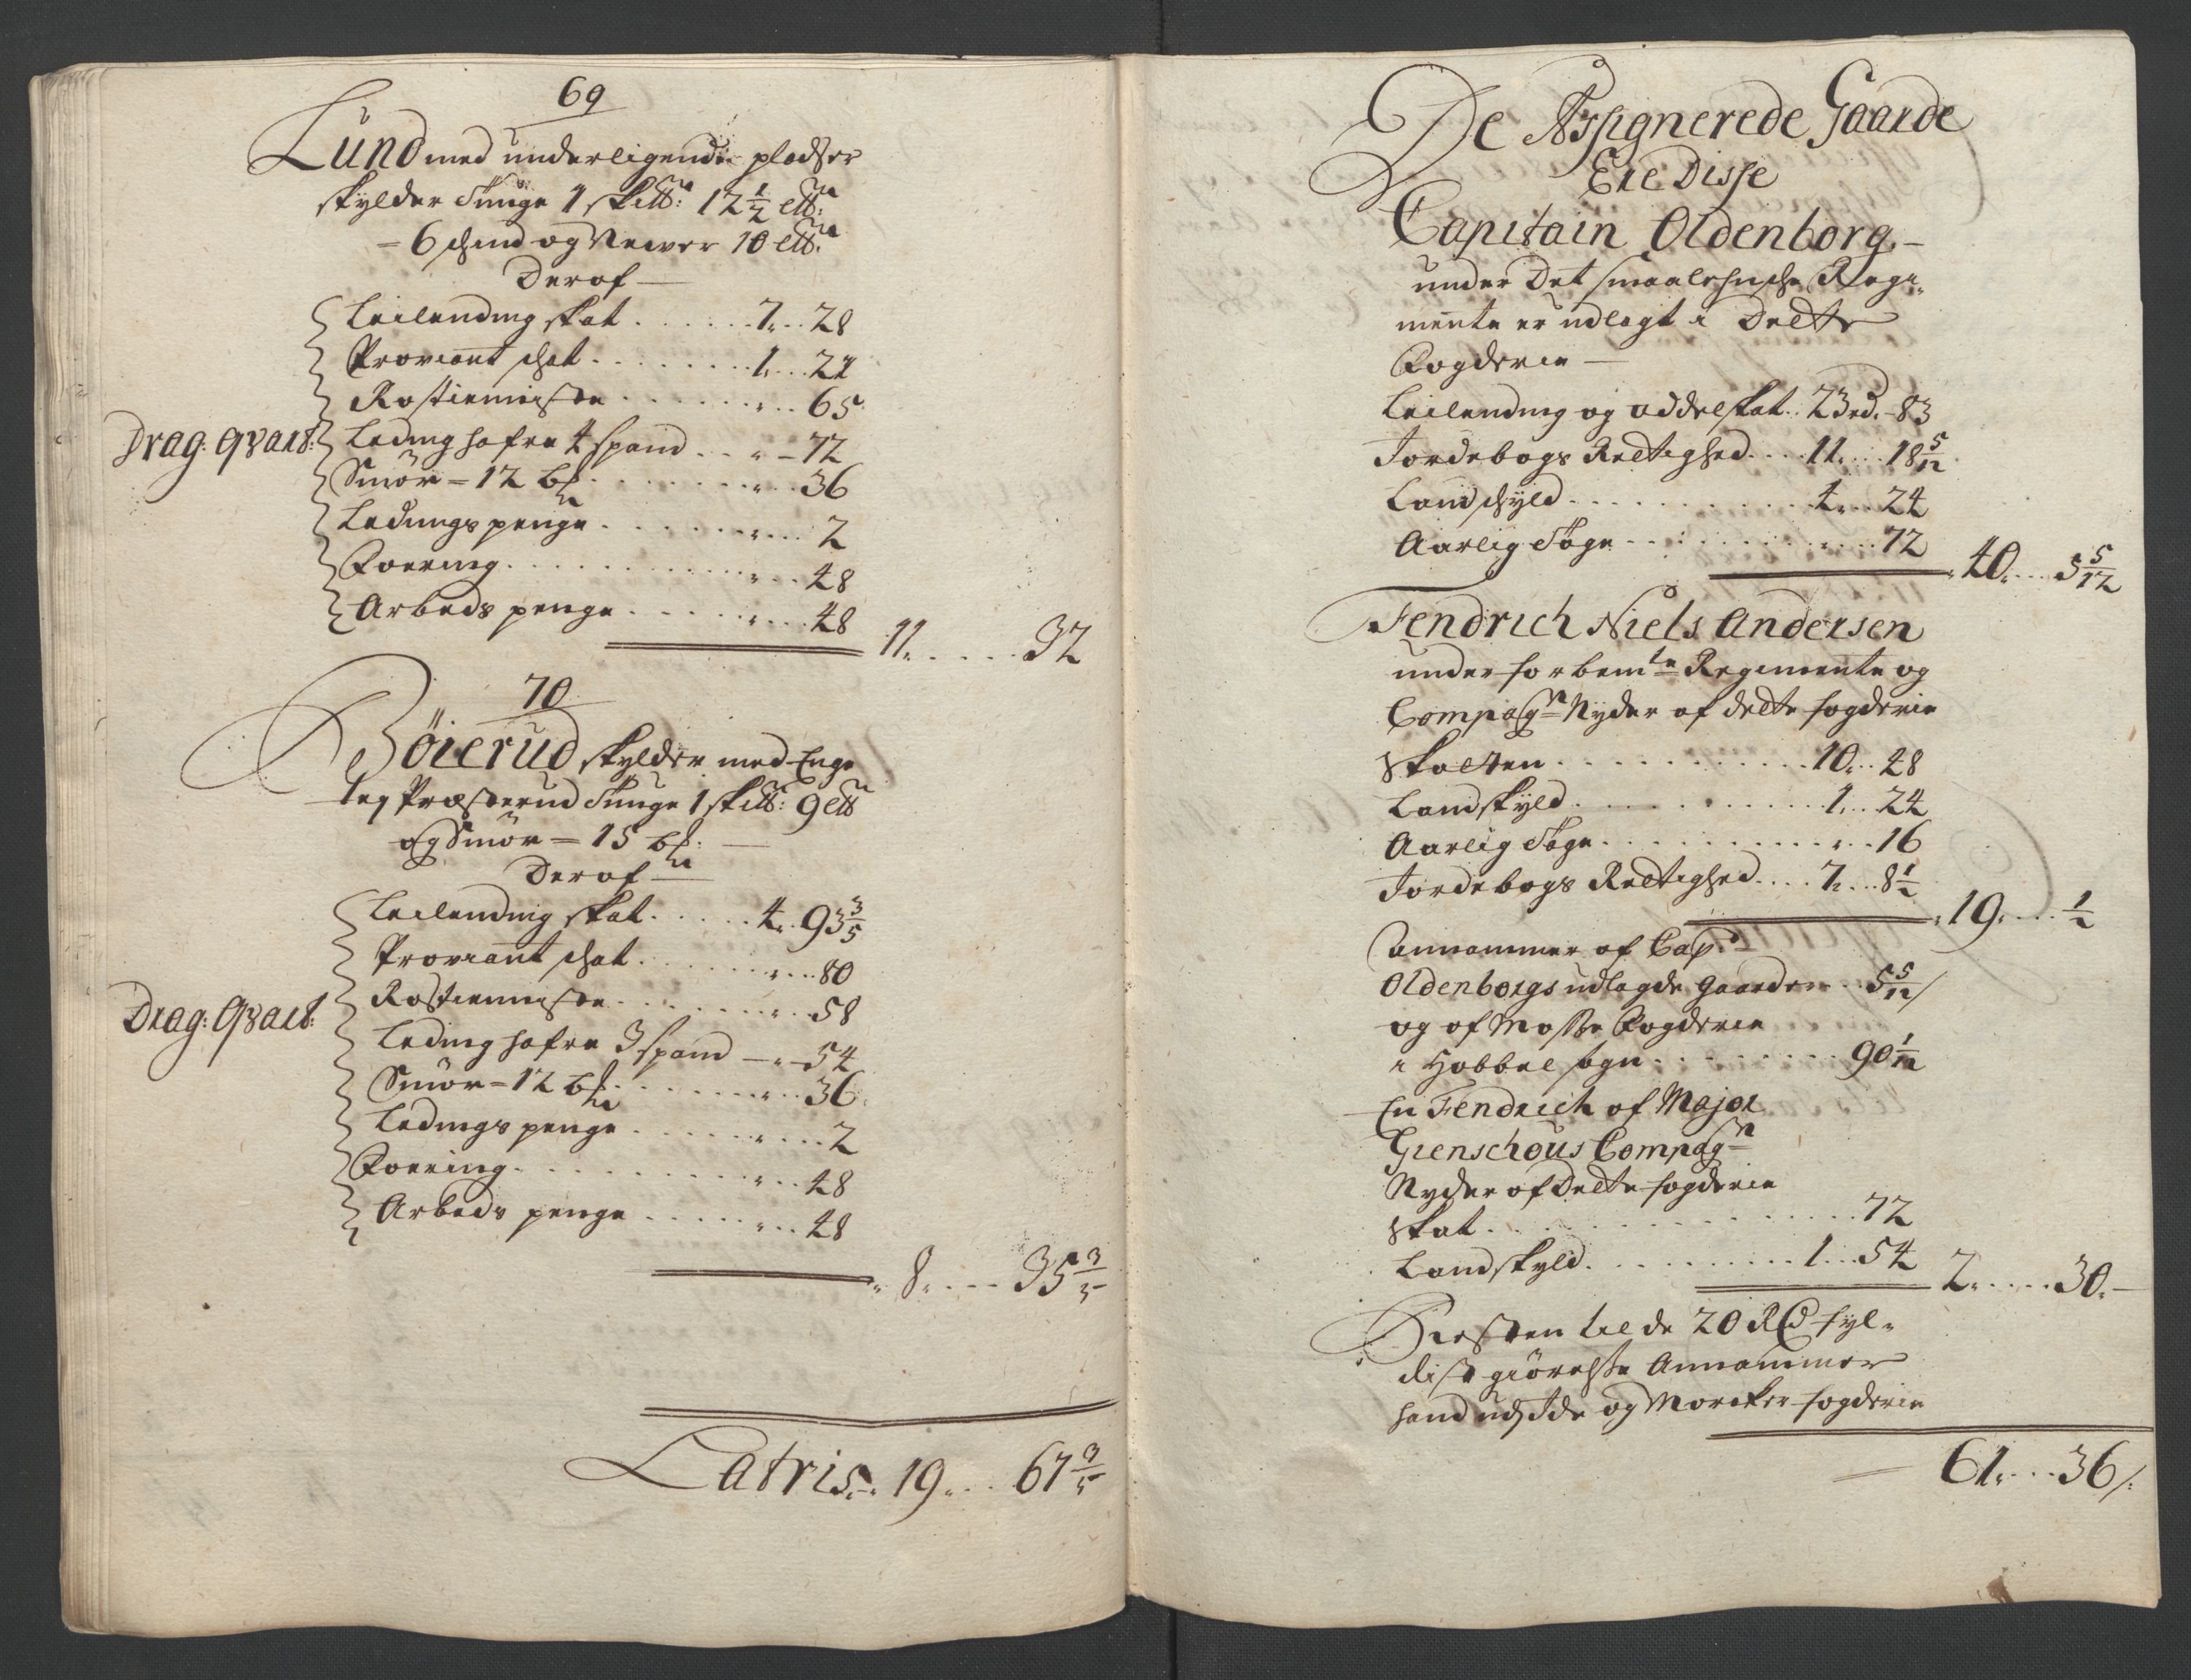 69
Lund med underligende pladser
skylder Tunge 1 ski℔: 12½ ℔:
= 6 schind og Newer 10 ℔:
Deraf
Leilending skat . . . . . . 7. . . 28
Proviant schat . . . . . . . 1. . . 21
Rostienniste . . . . . . . „ . . 65
Drag: Qvart: Leding hafre 4 spand . . „ – 72
Smör = 12 b . . . . . . . „ . . 36
Ledings penge . . . . . . . „ . . . 2
Foering . . . . . . . . . . „ . . . 48
Arbeds penge . . . . . . . „ . . . 48
11. . . . . . 32
70
Böierud skylder med Enge
teg Præsterud Tunge 1 ski℔: 9 ℔
og Smör = 15 b
Deraf
Leilending skat . . . . . 4. . 93 3/5
Proviant schat . . . . . . . „ . . . 80
Rostienniste . . . . . . . „ . . 58
Drag: Qvart: Leding hafre 3 spand – „ – 54
Smör = 12 b . . . . . . . „ . . 36
Ledings penge . . . . . . „ . . . 2
Foering . . . . . . . . . „ . . . 48
Arbeds penge . . . . . „ . . . 48
8. . . . 35 3/5
Latris . . 19. . . 67 3/5
De Assignerede Gaarde
Ere Disse
Capitain Oldenborg
under Det smaalehnsche Regi„
mente er udlagt i Dette
Fogderie
Leilending og oddelskat . . 23 rd. – 83
Jordebogs Rettighed . . . . 11. . . . 18 5/12
Landschyld . . . . . . . . . . 4. . . 24
Aarlig Tage . . . . . . . . . . . . . 72
40. . . . 5 5/12
Fendrich Niels Andersen
under forbemte Regimente og
Compagn Nyder af dette fogderie
Skatten . . . . . . . . . . . 10. . . 48
Landskyld . . . . . . . . . . 1. . . 24
Aarlig Tage . . . . . . . . . . „ . . 16
Jordebogs Rettighed . . . . 7. . . 8½
19. . . . ½
annammer af Cap:
Oldenborgs udlagde gaarder . . 5 5/12 /
og af Mosse Fogderie
i Hobbel sogn . . . . . . . . . 90 1/12
En Fendrich af Major
Grenschous Compagn
Nyder af Dette fogderie
Skat . . . . . . . . . . . . . . . . 72
Landskyld . . . . . . . . . . 1. . . 54
2. . . . . 30. –
Resten til de 20 Rd fyl„
dist giörelse Annammer
hand ud Ide og Marcker fogderie
61. . . . 36 /: